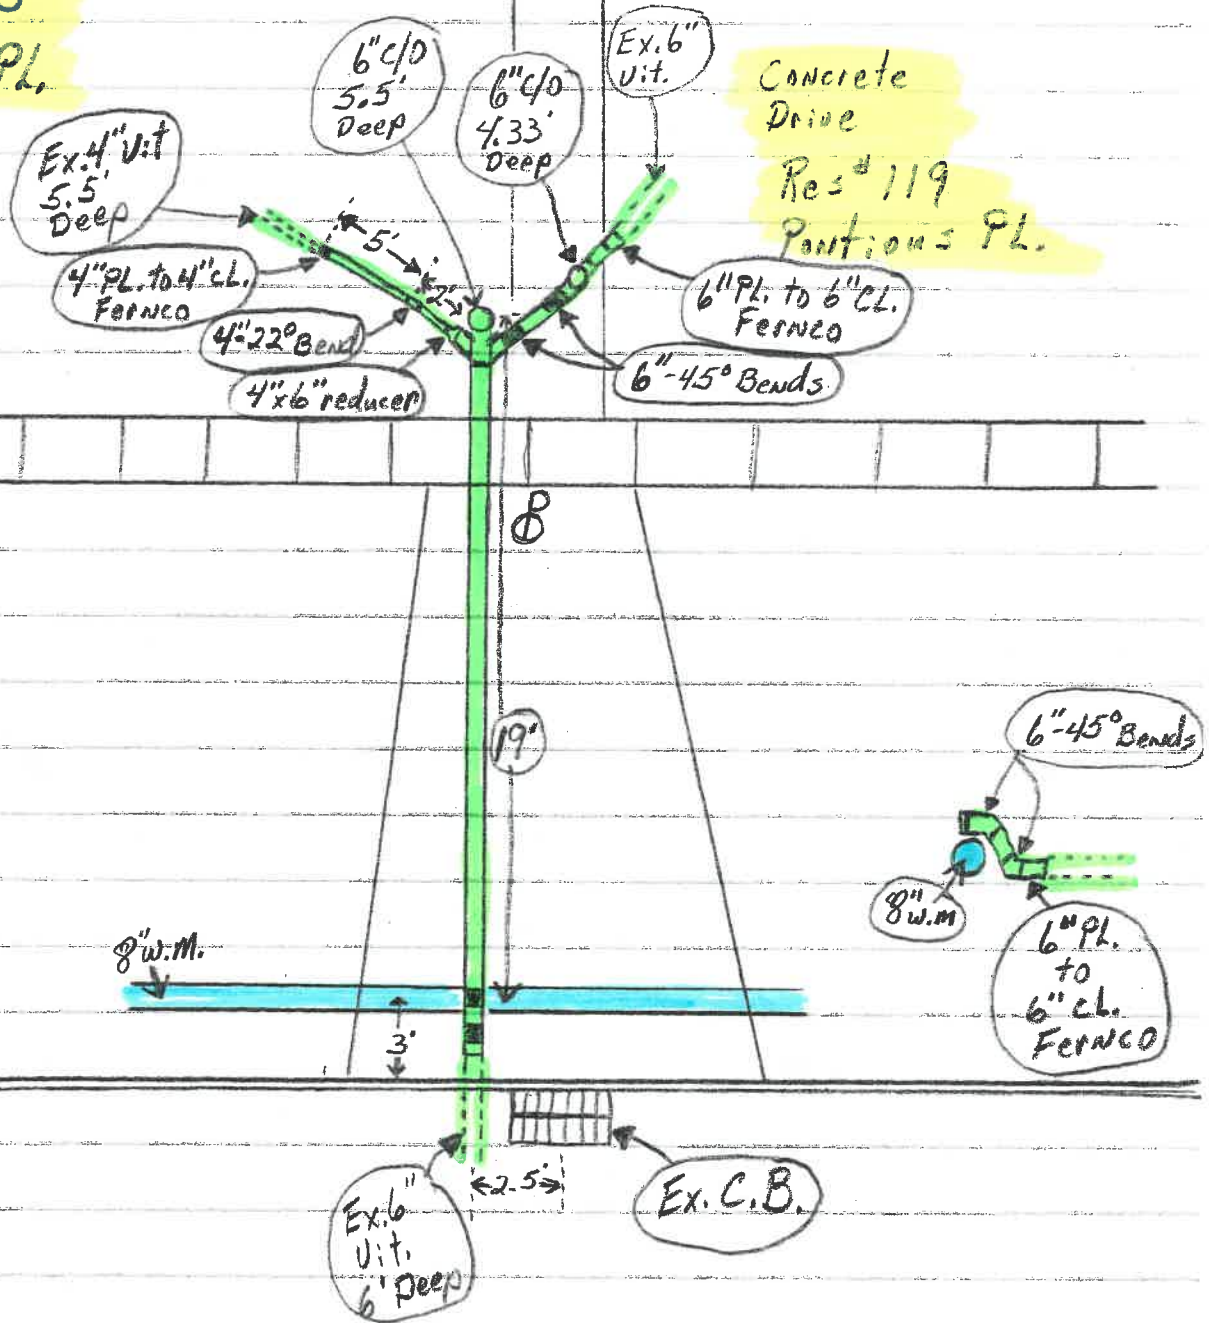 PL.
6" C/O
5.5'
Deep
6" C/O
4.33'
Deep
Ex. 6"
Vit.
Concrete
Drive
Res# 119
Pontious PL.
Ex. 4" Vit
5.5'
Deep
5'
2'
4" PL. to 4" CL.
Fernco
4"-22° Bend
4"x6" reducer
6" PL. to 6" CL.
Fernco
6"-45° Bends
P
19'
6"-45° Bends
8" W.M
6" PL.
to
6" CL.
Fernco
8" W.M.
3'
2.5'
Ex. C.B.
Ex. 6"
Vit.
6' Deep